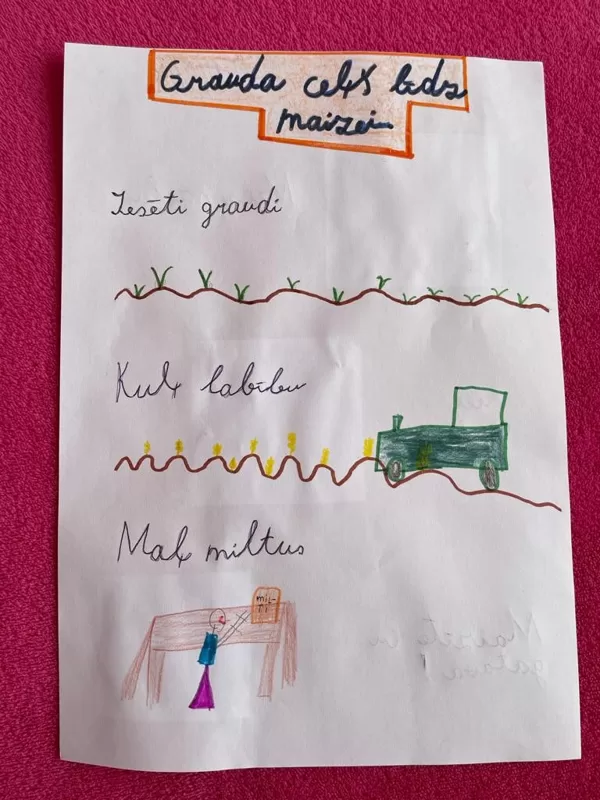 Grauda ceļš līdz
maizei
Iesēti graudi
Kuļ labību
Maļ miltus
mil-
ti